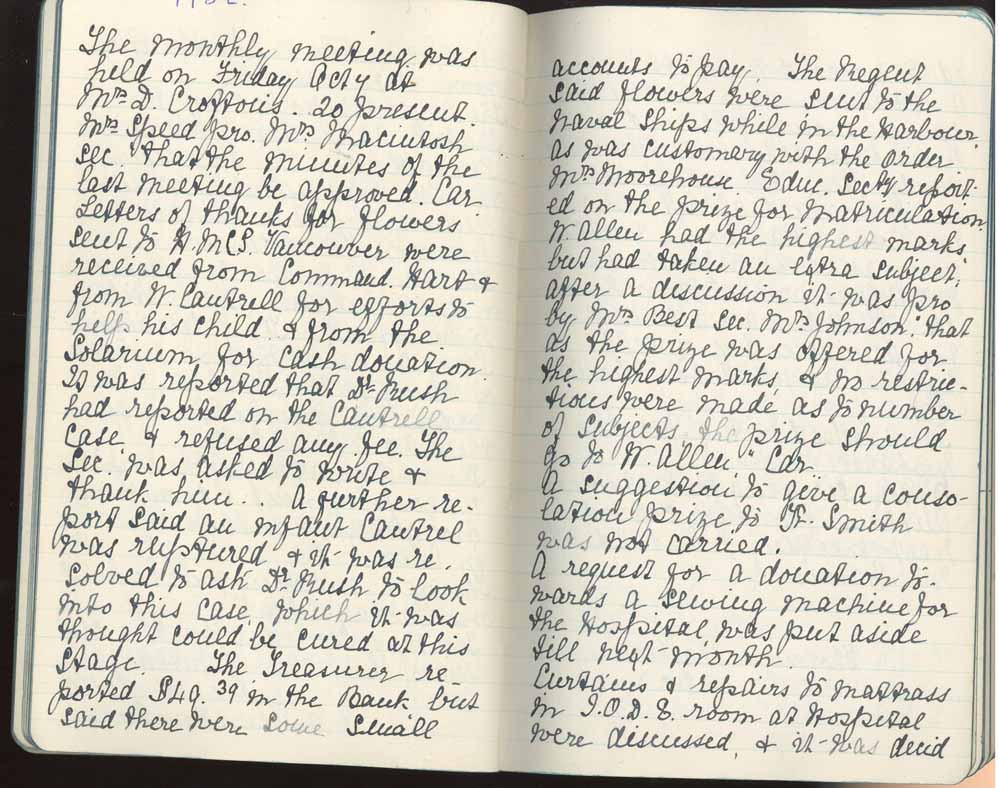 The monthly meeting was
held on Friday Oct 4 at
Mrs D. Crofton's. 20 present.
Mrs Speed pro. Mrs Macintosh
sec. "that the minutes of the
last meeting be approved. Car.
Letters of thanks for flowers
sent to H.M.C.S. Vancouver were
received from Command. Hart &
from W. Cantrell for efforts to
help his child. & from the
Solarium for cash donation.
It was reported that Dr Rush
had reported on the Cantrell
case & refused any fee. The
Sec. was asked to write &
thank him. . A further re-
port said an infant Cantrel
was ruptured & it was re.
solved to ask Dr Rush to look
into this case, which it was
thought could be cured at this
stage. The Treasurer re-
ported $49.39 in the Bank but
said there were some small
accounts to pay. The Regent
said flowers were sent to the
Naval Ships while in the Harbour
as was customary with the order
Mrs Moorehouse Educ. Secty report-
ed on the prize for Matriculation
W. Allen had the highest marks
but had taken an extra subject,
after a discussion it was pro
by Mrs Best sec. Mrs Johnson "that
as the prize was offered for
the highest marks, & no restric-
tions were made as to number
of subjects, the prize should
go to W. Allen" Car
A suggestion to give a conso-
lation prize to Smith
was not carried.
A request for a donation to-
wards a sewing machine for
the Hospital was put aside
till next month.
Curtains & repairs to mattrass
in I.O.D.E. room at Hospital
were discussed, & it was decid